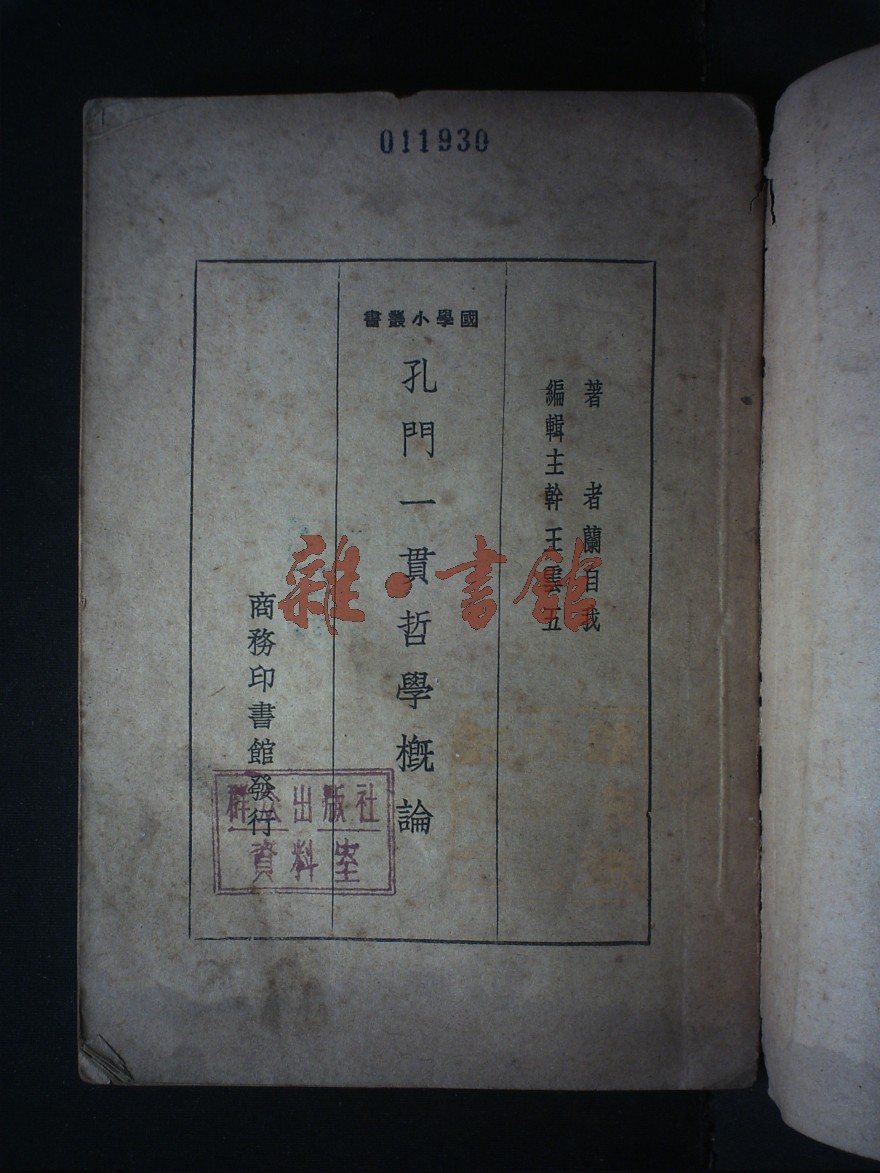 011930
著者蘭自我
編輯主幹王雲五
書叢小學國
孔門一貫哲學概論
商務印書館發行
雜·書館
群众出版社
資料室